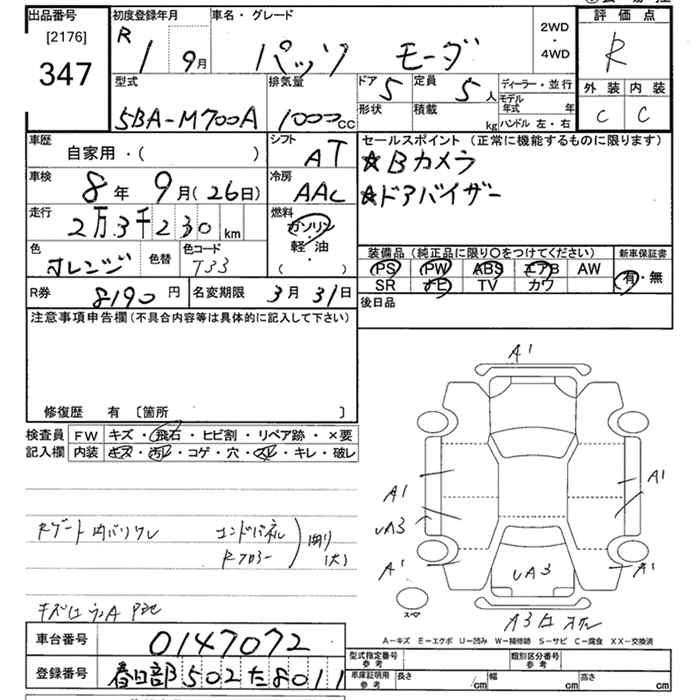 出品番号
[2176]
347
初度登録年月
R 1 9月
車名・グレード
パッソ モーダ
2WD
・
4WD
評価点
R
外装 内装
C C
型式
5BA-M700A
排気量
1000cc
ドア 5
形状
定員 5人
積載 kg
ディーラー・並行
モデル年式 年
ハンドル 左・右
車歴
自家用・( )
シフト
AT
セールスポイント (正常に機能するものに限ります)
☆Bカメラ
☆ドアバイザー
車検
8年 9月(26日)
冷房
AAC
走行
2万3千230km
燃料
ガソリン
軽・油
( )
色
オレンジ
色替
色コード
T33
装備品(純正品に限り〇をつけてください)
新車保証書
PS PW ABS エアB AW
SR ナビ TV カワ
有・無
R券 8190円
名変期限 3月31日
後日品
注意事項申告欄(不具合内容等は具体的に記入して下さい)
修復歴 有 〔箇所 〕
検査員 FW キズ・飛石・ヒビ割・リペア跡・×要
記入欄 内装 キズ・汚レ・コゲ・穴・スレ・キレ・破レ
Rゲート内バリワレ
エンドパネル
Rフロアー
(大)
A1
A1
A1
UA3
A1
A1
UA3
スペア
A-キズ E-エクボ U-凹み W-補修跡 S-サビ C-腐食 XX-交換済
車台番号
0147072
登録番号
春日部502た8011
型式指定番号
参考
類別区分番号
参考
車庫証明用
参考
長さ cm
幅 cm
高さ cm